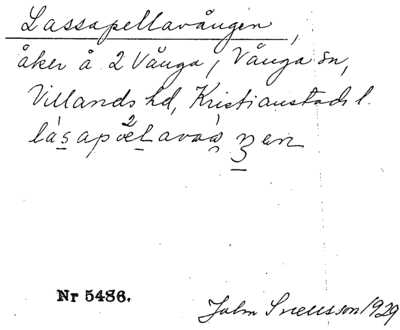 Lassapellavången,
åker å 2 Vånga, Vånga sn,
Villands hd, Kristianstads l.
Nr 5486.
John Svensson 1929